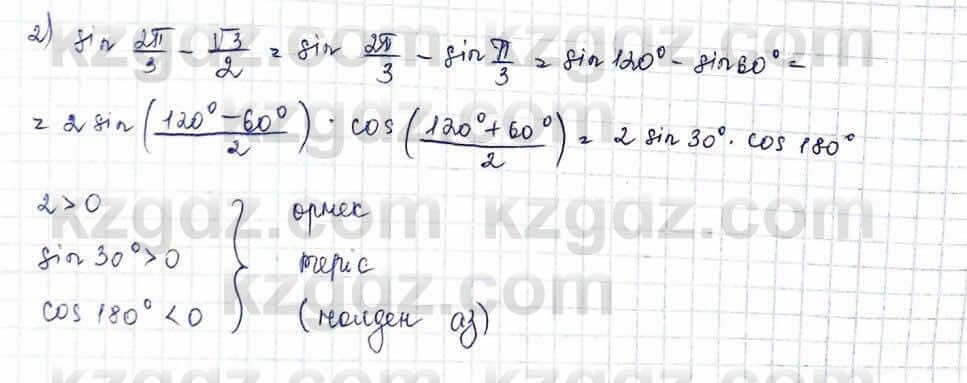 2) sin 2π/3 - √3/2 = sin 2π/3 - sin π/3 = sin 120° - sin 60° =
= 2 sin (120° - 60°/2) · cos (120° + 60°/2) = 2 sin 30° · cos 180°
2 > 0 } өрнек
sin 30° > 0 } теріс
cos 180° < 0 } (нөлден аз)
kzgdz.com kzgdz.com